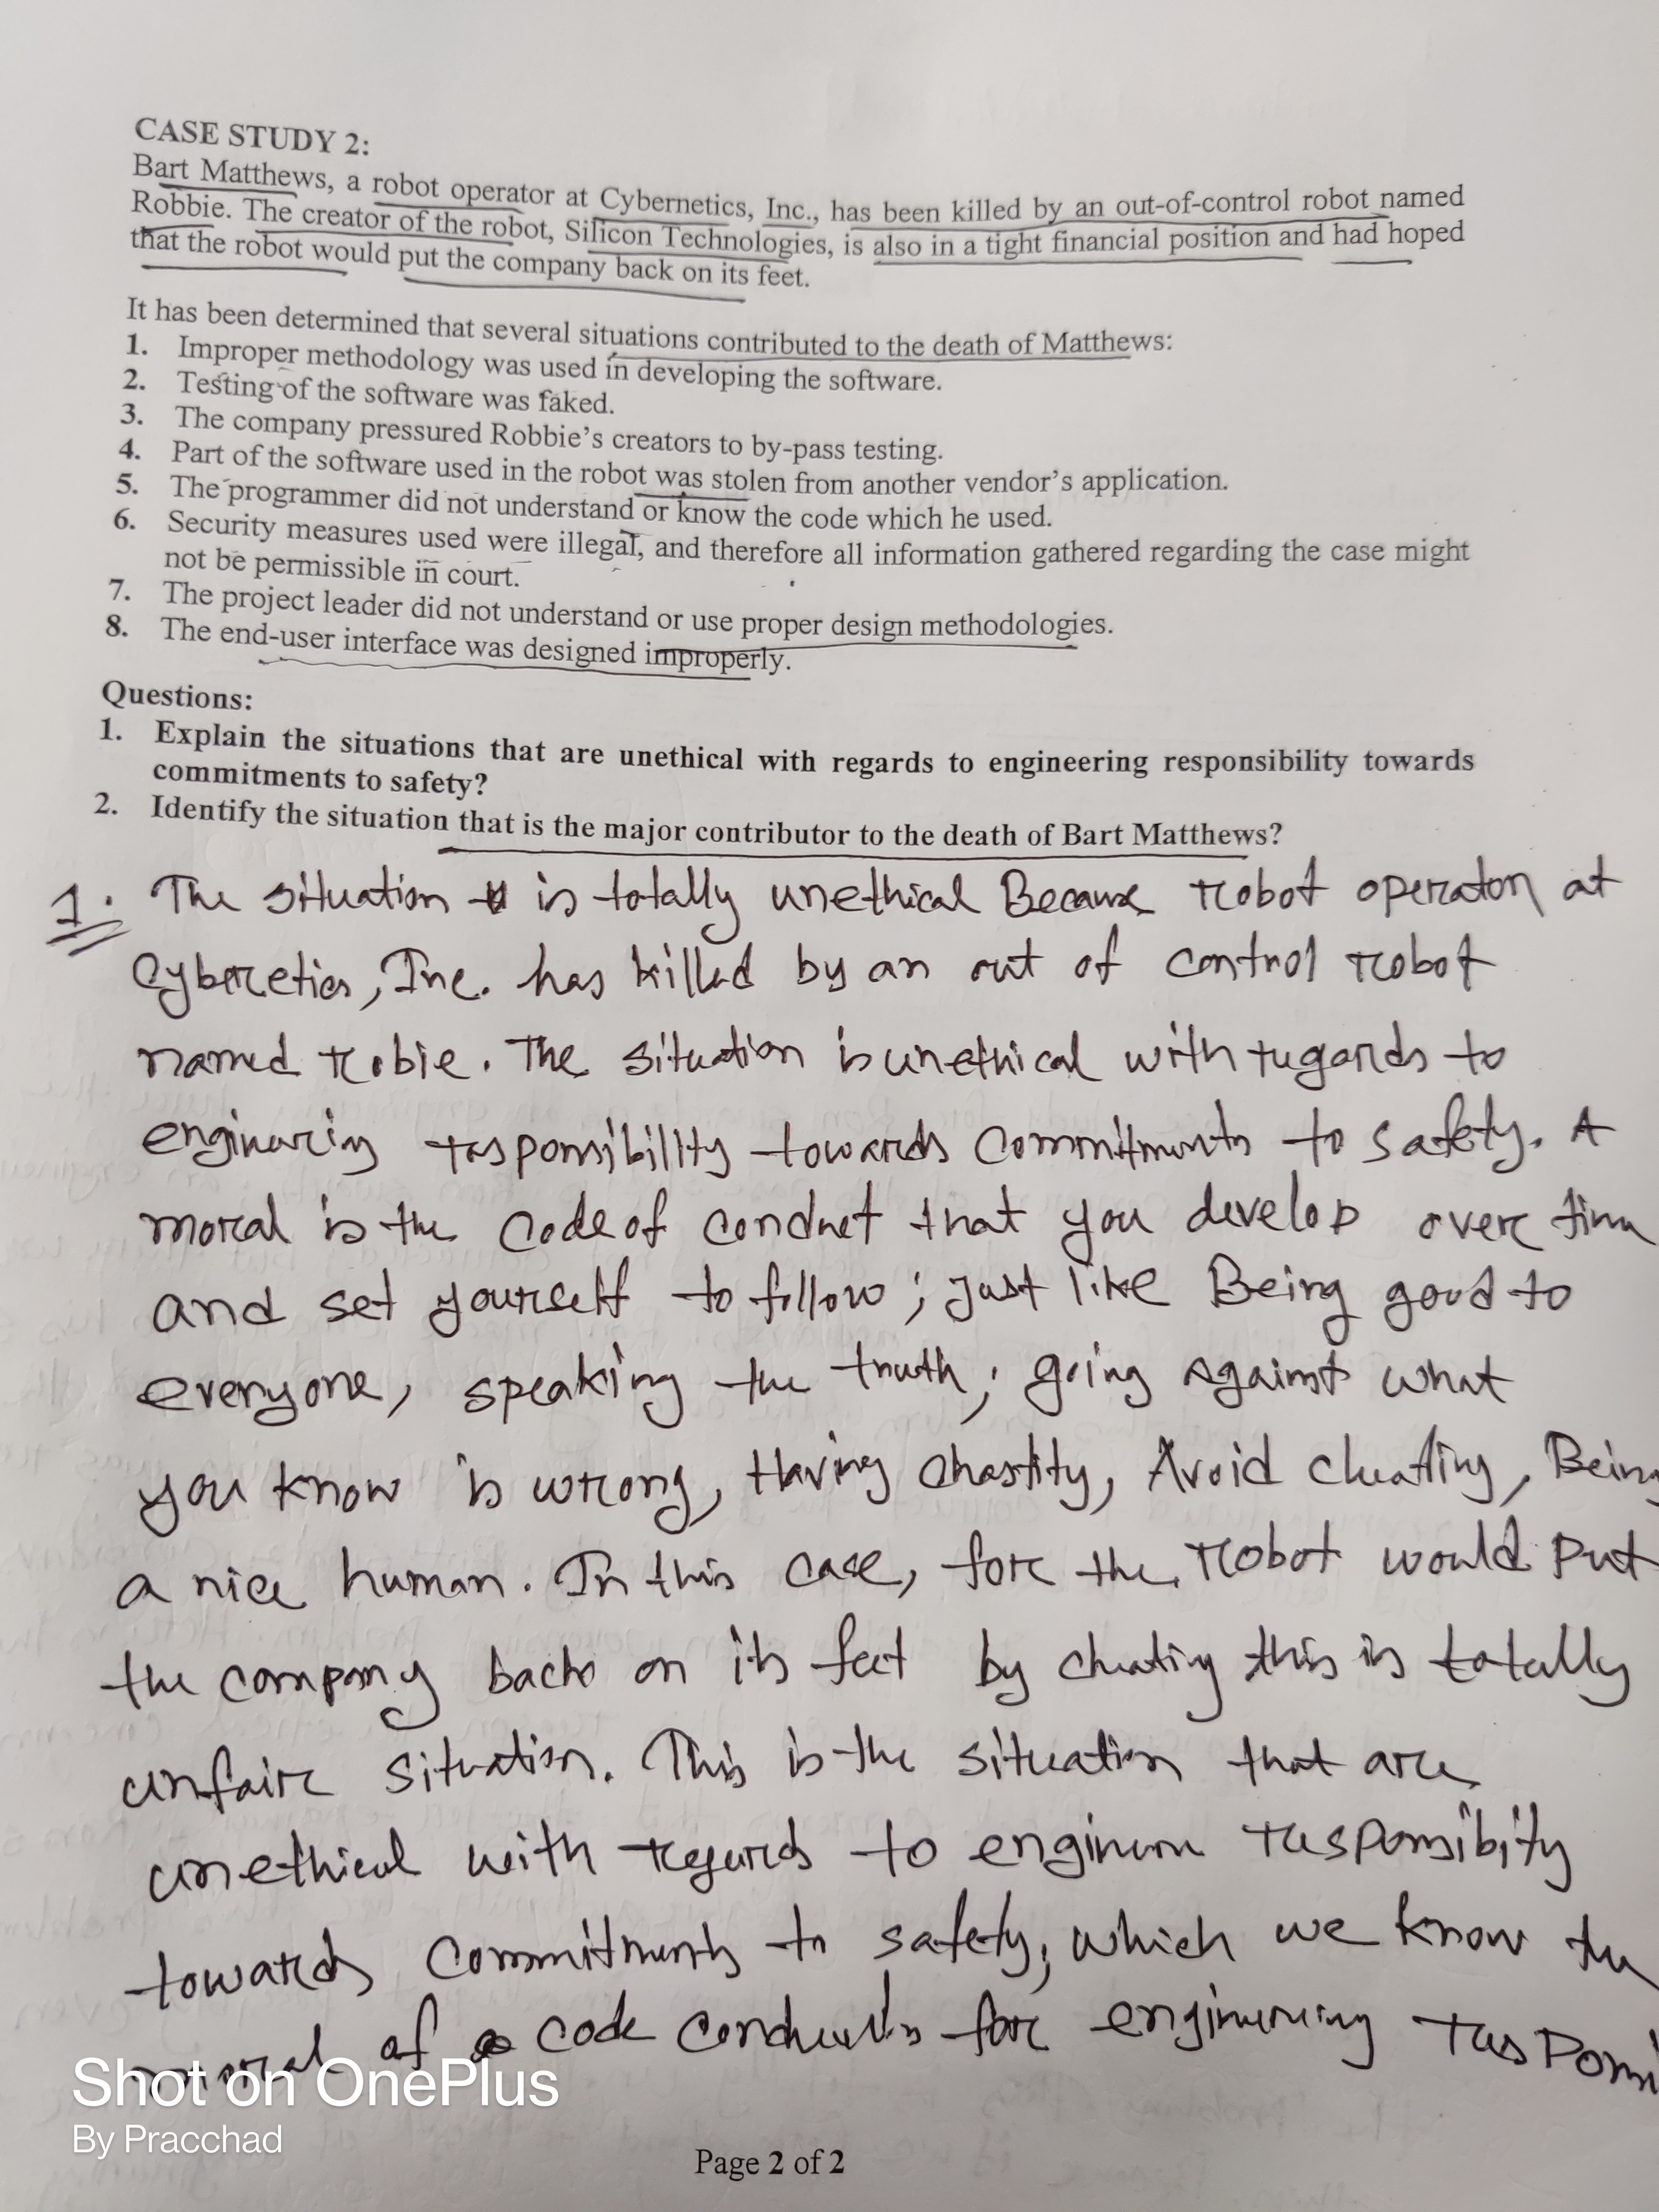 CASE STUDY 2:
Bart Matthews, a robot operator at Cybernetics, Inc., has been killed by an out-of-control robot named
Robbie. The creator of the robot, Silicon Technologies, is also in a tight financial position and had hoped
that the robot would put the company back on its feet.
It has been determined that several situations contributed to the death of Matthews:
1. Improper methodology was used in developing the software.
2. Testing of the software was faked.
3. The company pressured Robbie's creators to by-pass testing.
4. Part of the software used in the robot was stolen from another vendor's application.
5. The programmer did not understand or know the code which he used.
6. Security measures used were illegal, and therefore all information gathered regarding the case might
not be permissible in court.
7. The project leader did not understand or use proper design methodologies.
8. The end-user interface was designed improperly.
Questions:
1. Explain the situations that are unethical with regards to engineering responsibility towards
commitments to safety?
2. Identify the situation that is the major contributor to the death of Bart Matthews?
1. The situation is totally unethical Because robot operator at
Cyberetics, Inc. has killed by an out of control robot
named robie. The situation is unethical with regards to
engineering responsibility towards commitments to safety. A
moral is the code of conduct that you develop over time
and set yourself to follow; just like Being good to
everyone, speaking the truth, going against what
you know is wrong, Having chastity, Avoid cheating, Being
a nice human. In this case, for the robot would put
the company back on its feet by cheating this is totally
unfair situation. This is the situation that are
unethical with regards to engineer resposibity
towards commitments to safety, which we know the
moral of code conducts for engineering
Shot on OnePlus
By Pracchad
Page 2 of 2